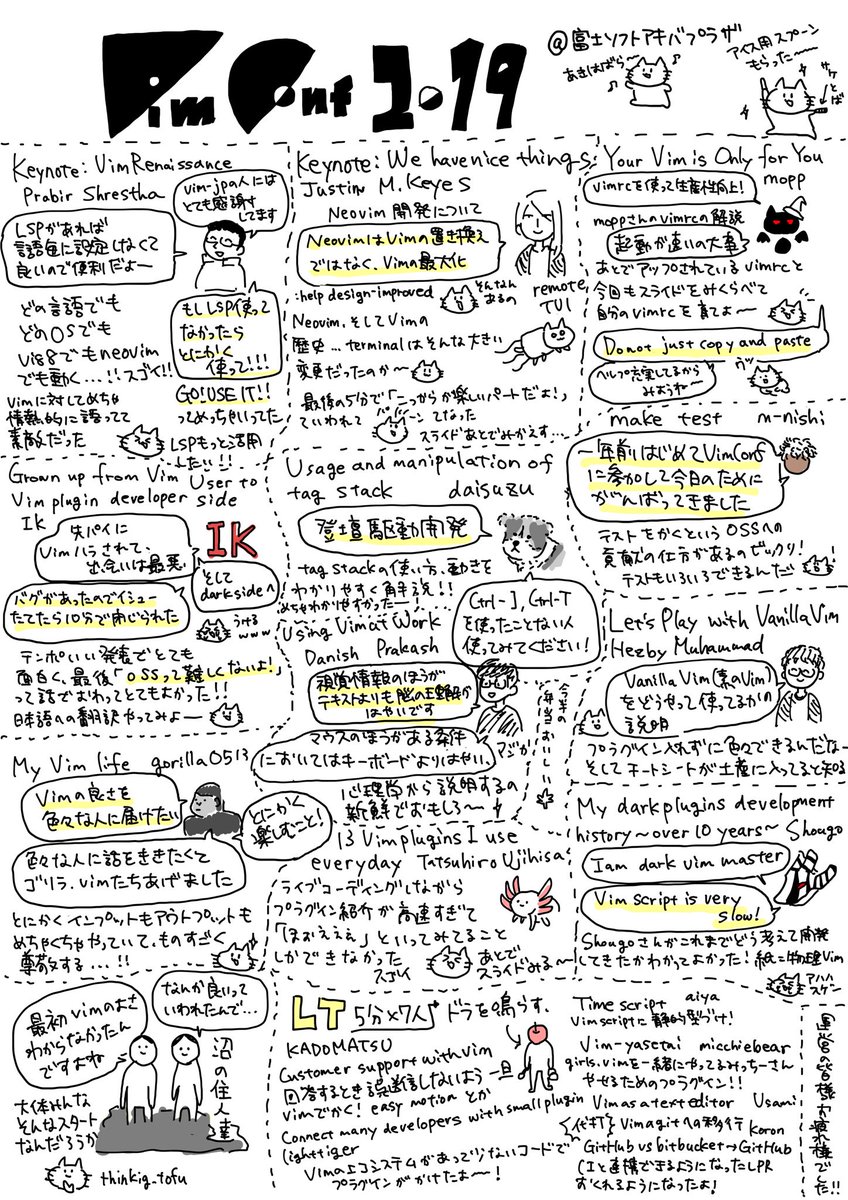 Vim Conf 2019
@富士ソフトアキバプラザ
あきはばら〜
アイス用スプーン
もらった〜
サケ
とば
Keynote: Vim Renaissance
Prabir Shrestha
vim-jpの人には
とても感謝
してます
LSPがあれば
言語毎に設定しなくて
良いので便利だよー
どの言語でも
どのOSでも
Vi88でもneovim
でも動く...!!スゴイ!!
もしLSP使って
なかったら
とにかく
使って!!!
GO!USE IT!!
ってめちゃいってた
Vimに対してめちゃ
情熱的に語ってて
素敵だった
LSPもっと活用
したい!!
Keynote: We have nice things
Justin M. Keyes
Neovim 開発について
Neovimは Vimの置き換え
ではなく、Vimの最大化
:help design-improved
そんなん
あるの
remote
TUI
Neovim、そしてVimの
歴史...terminalはそんな大きい
変更だったのか〜
最後の5分で「こっからが楽しいパートだよ!」
っていわれて
てなった
スライドあとでみかえす...
Your Vim is Only for You
mopp
vimrcを使って生産性向上!
moppさんのvimrcの解説
起動が速いの大事
あとでアップされているvimrcと
今回もスライドをみくらべて
自分のvimrcを育てよ〜
Do not just copy and paste
ヘルプ充実してるから
みようね〜
ウッ
make test m-nishi
一年前はじめてVimConf
に参加して今日のために
がんばってきました
テストをかくという OSSへの
貢献の仕方があるのビックリ!
テストもいろいろできるんだ!
Grown up from Vim User to
Vim plugin developer side
IK
先パイに
Vimハラされて、
出会いは最悪
IK
そして
dark sideへ
バグがあったのでイシュー
たてたら10分で閉じられた
うける
www
テンポいい発表でとても
面白く、最後「OSSって難しくないよ!」
って話でおわってとてもよかった!!
日本語への翻訳やってみよ〜
Usage and manipulation of
tag stack daisuzu
登壇駆動開発
tag stackの使い方、動きを
わかりやすく解説!!
めちゃわかりやすかった〜!...
Ctrl-], Ctrl-T
を使ったことない人
使ってみてください!
Using Vim at Work
Danish Prakash
視覚情報のほうが
テキストよりも脳の
はやいです
マウスのほうがある条件
においてはキーボードよりはやい
マジか
心理学から説明するの
新鮮でおもしろ〜
今半の
弁当おいしい
Let's Play with Vanilla Vim
Hezby Muhammad
Vanilla Vim(素のVim)
をどうやって使ってるかの
説明
プラグイン入れずに色々できるんだな〜
そしてチートシートが土産に入ってると知る
My Vim life gorilla0513
Vimの良さを
色々な人に届けたい
とにかく
楽しむこと!
色々な人に話をききたくて
ゴリラ.vimたちあげました
とにかくインプットもアウトプットも
めちゃくちゃやっていて、ものすごく
尊敬する...!!
13 Vim plugins I use
everyday Tatsuhiro Ujihisa
ライブコーディングしながら
プラグイン紹介が高速すぎて
「ほぉえええ」といってみてること
しかできなかった
スゴイ
あとで
スライドみる〜
My dark plugins development
history〜over 10 years〜 Shougo
I am dark vim master
Vim script is very
slow!
Shougoさんがこれまでどう考えて開発
してきたかわかってよかった!紙=物理Vim
アハハ
スゲー
最初vimのよさ
わからなかったん
ですよね
なんか良いって
いわれたんで...
沼の住人達
大体みんな
そんなスタート
なんだろうか
thinkig_tofu
LT 5分×7人 ドラを鳴らす。
KADOMATSU
Customer support with vim
回答するとき誤送信しないよう一旦
vimでかく! easy motion とか
Connect many developers with small plugin
lighttiger
Vimのエコシステムがあって少ないコードで
プラグインがかけたよ〜!
Time script aiya
Vim scriptに静的型づけ!
Vim-yasetai micchiebear
girls.vimを一緒にやってるみっちーさん
やせるためのプラグイン!!
Vim as a text editor Usami
代打 Vimagitへの移行 Koron
GitHub vs bitbucket→GitHub
CIと連携できるようになったしPR
すくれるようになったよ!
運営の皆様お疲れ様でした!!